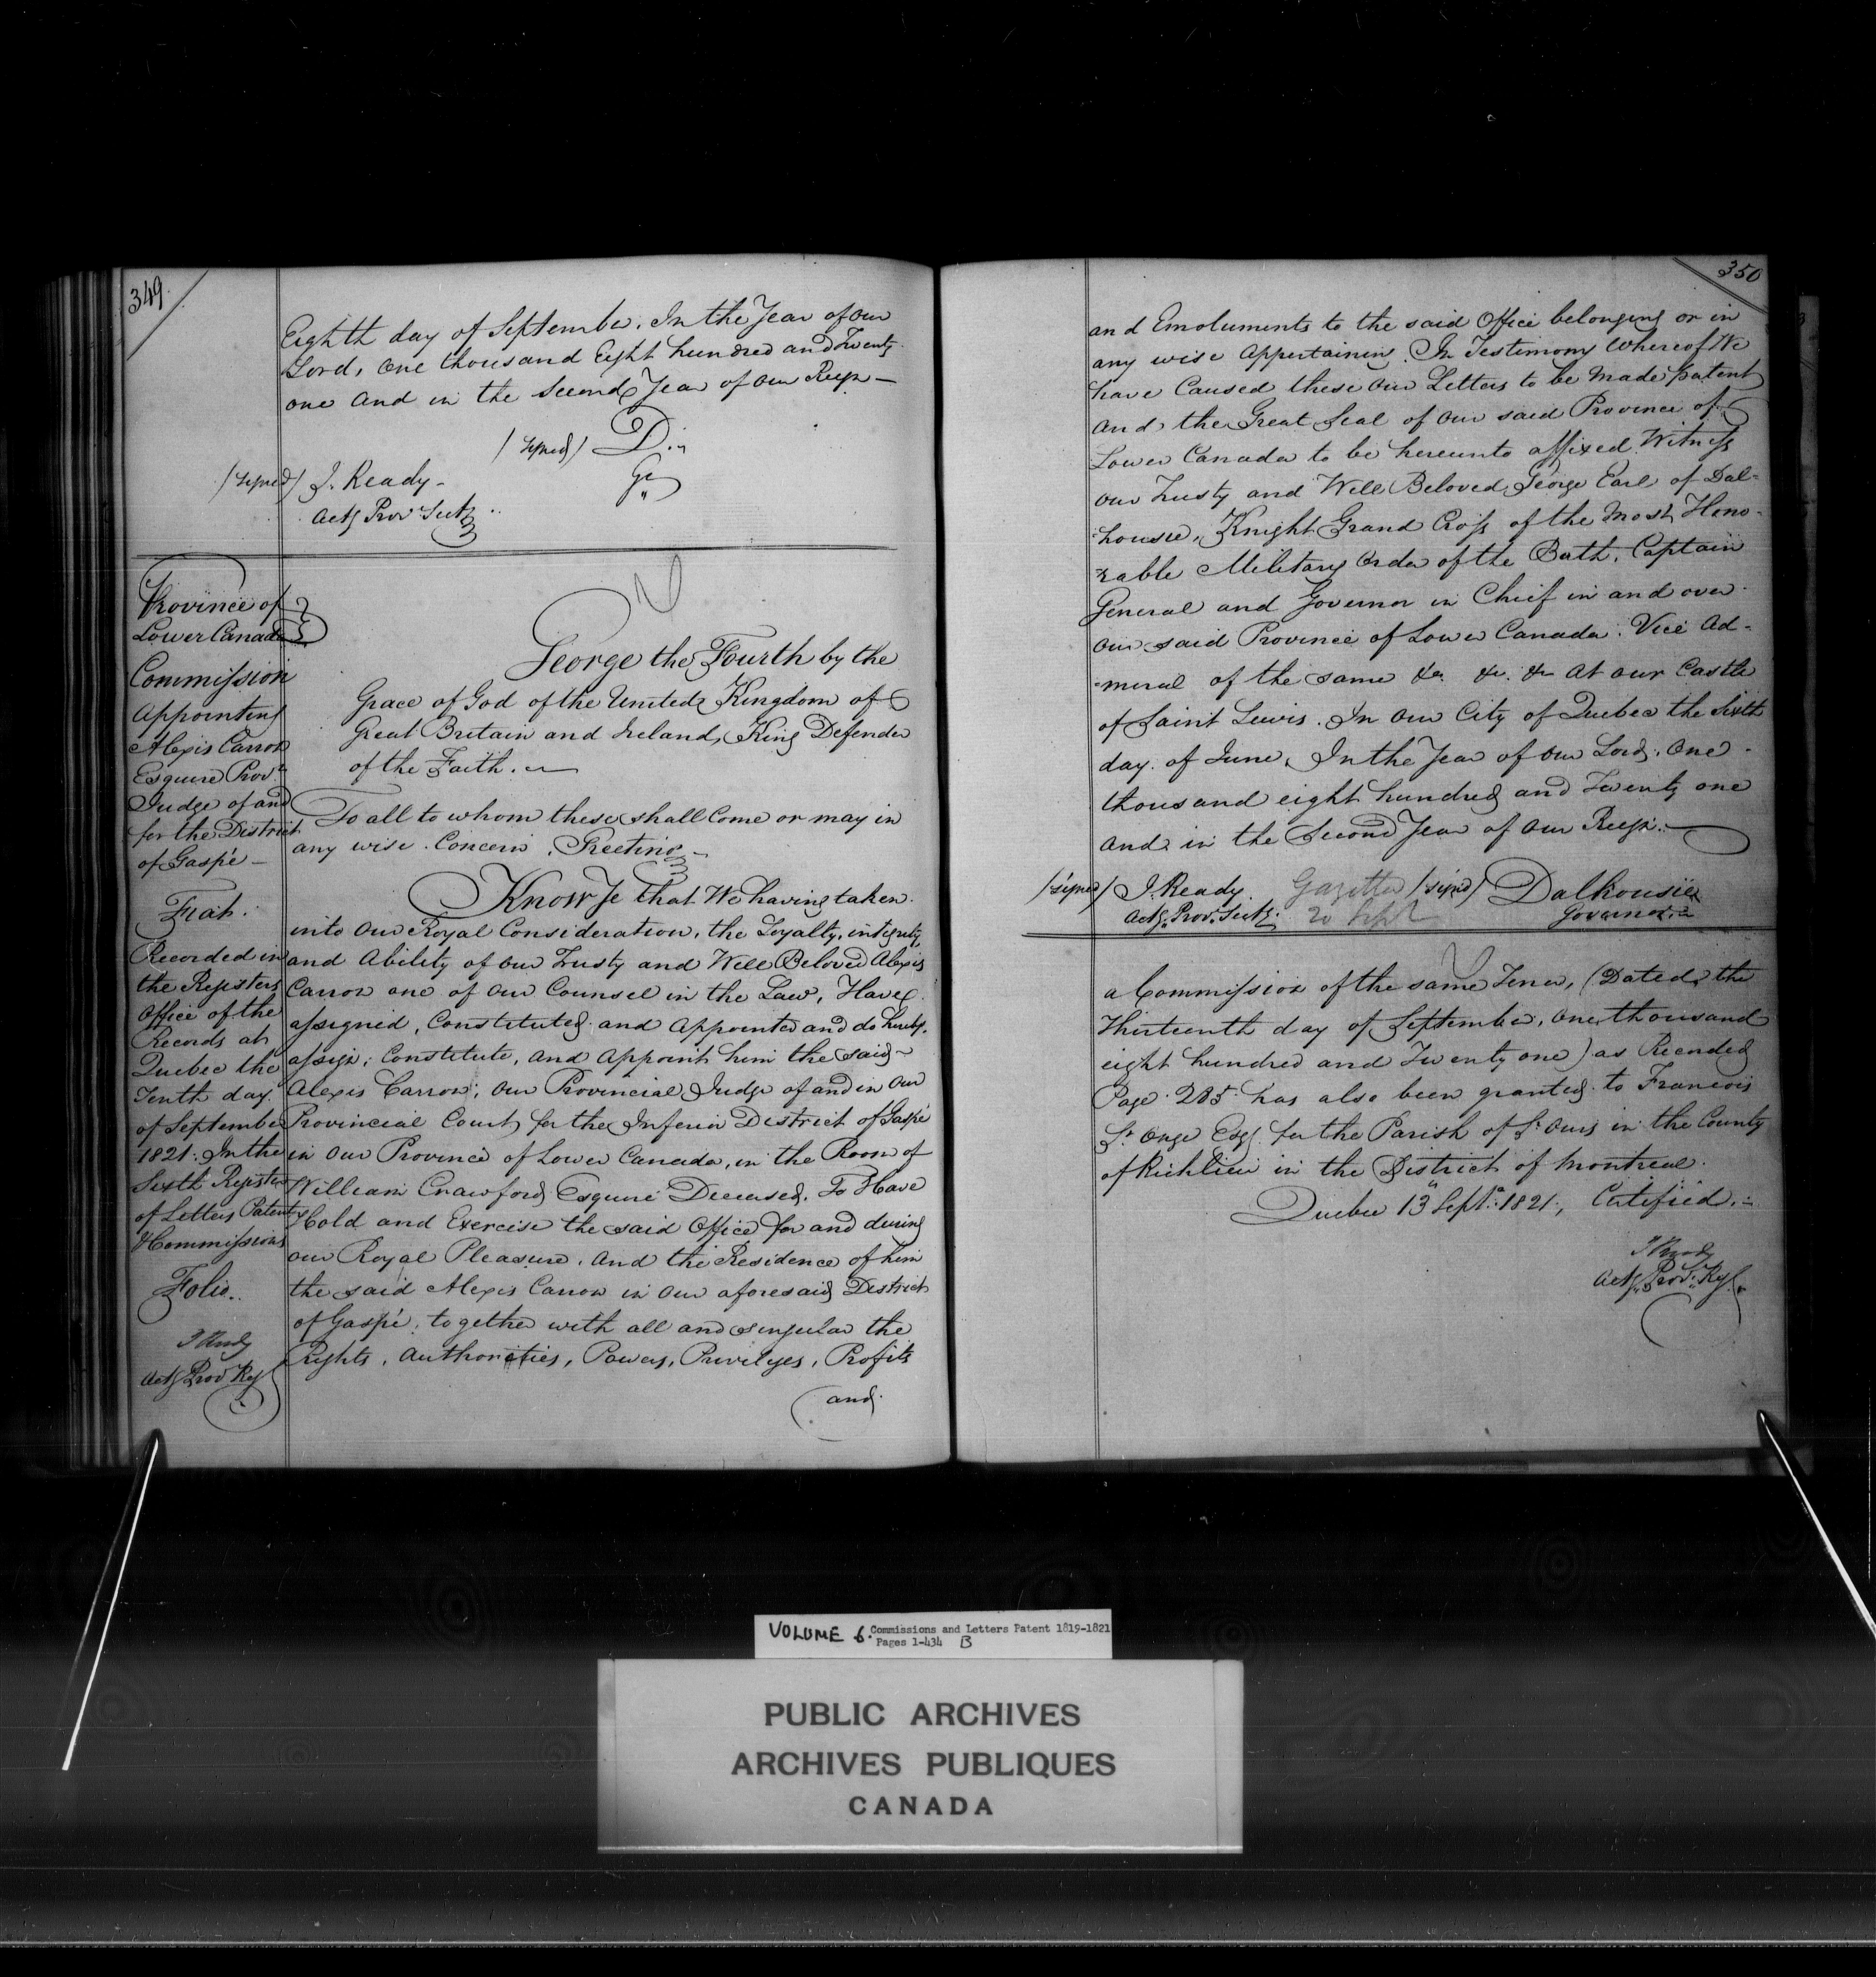 349.
Eighth day of September. In the Year of Our
Lord, One thousand Eight hundred and Twenty
one and in the Second Year of Our Reign —
(signed) D..
(signed) J. Ready - Gr
Actg Provl Secty ..
Province of
Lower Canada
Commission
Appointing
Alexis Carron
Esquire Provl
Judge of and
for the District
of Gaspé —
Fiat.
Recorded in
the Registers
Office of the
Records at
Quebec the
Tenth day
of September
1821. In the
Sixth Register
of Letters Patent
& Commissions
Folio..
J Ready
Actg Provl Regr
George the Fourth by the
Grace of God of the United Kingdom of
Great Britain and Ireland, King Defender
of the Faith. —
To all to whom these shall Come or may in
any wise. Concern. Greeting —
Know Ye that We having taken.
into Our Royal Consideration, the Loyalty, integrity,
and Ability of Our Trusty and Well Beloved Alexis
Carron one of Our Counsel in the Law, Have
assigned, Constituted and Appointed and do hereby.
assign; Constitute, and Appoint him the said —
Alexis Carron; Our Provincial Judge of and in Our
Provincial Court for the Inferior District of Gaspé
in Our Province of Lower Canada, in the Room of
William Crawford Esquire Deceased. To Have
Hold and Exercise the said Office for and during
our Royal Pleasure. And the Residence of him
the said Alexis Carron in Our aforesaid District
of Gaspé, together with all and singular the
Rights, Authorities, Powers, Privileges, Profits
and
350
and Emoluments to the said Office belonging or in
any wise Appertaining. In Testimony Whereof We
have Caused these Our Letters to be Made patent
and the Great Seal of Our said Province of
Lower Canada to be hereunto affixed. Witness
our Trusty and Well Beloved George Earl of Dal-
-housie, Knight Grand Cross of the Most Hono-
-rable Military Order of the Bath, Captain
General and Governor in Chief in and over.
Our said Province of Lower Canada. Vice Ad-
-meral of the same &c. &c. &c At our Castle
of Saint Lewis. In Our City of Quebec the Sixth
day of June, In the Year of Our Lord, One
thousand eight hundred and Twenty one
and in the Second Year of Our Reign. —
(signed) J. Ready. Gazette (signd) Dalhousie
Actg. Provl. Secty. 20 Sept Governor.
a Commission of the same Tenor, (Dated, the
Thirteenth day of September, one thousand
eight hundred and Twenty one) as Recorded
Page 285 has also been granted to Francois
St Onge Esqr. for the Parish of St Ours in the County
of Richlieu in the District of Montreal.
Quebec 13 Septr. 1821., Certified. -
J Ready
Actg Provl. Regr.
VOLUME 6. Commissions and Letters Patent 1819-1821
Pages 1-434 B
PUBLIC ARCHIVES
ARCHIVES PUBLIQUES
CANADA